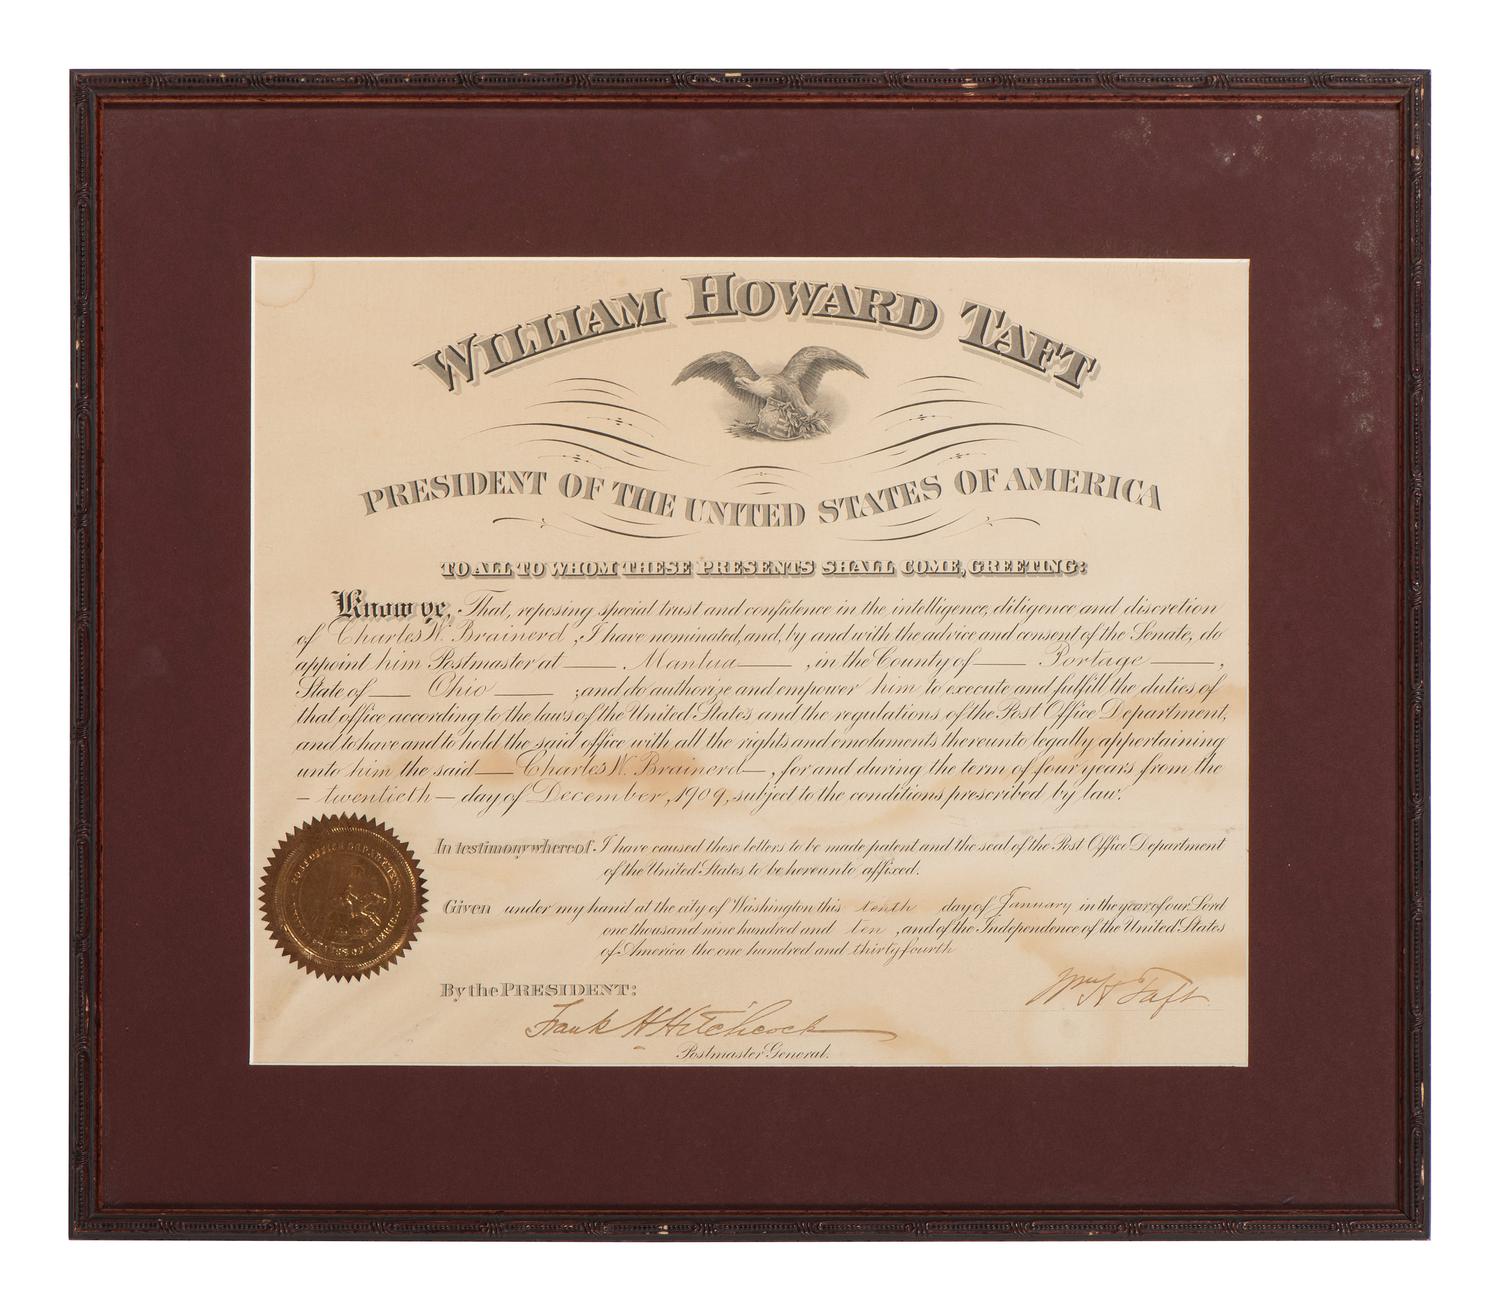 WILLIAM HOWARD TAFT
PRESIDENT OF THE UNITED STATES OF AMERICA
TO ALL TO WHOM THESE PRESENTS SHALL COME, GREETING:
Know ye, That, reposing special trust and confidence in the intelligence, diligence and discretion
of Charles W. Brainerd, I have nominated, and, by and with the advice and consent of the Senate, do
appoint him Postmaster at — Mantua —, in the County of — Portage —,
State of — Ohio — ; and do authorize and empower him to execute and fulfill the duties of
that office according to the laws of the United States and the regulations of the Post Office Department,
and to have and to hold the said office with all the rights and emoluments thereunto legally appertaining
unto him the said — Charles W. Brainerd —, for and during the term of four years from the
— twentieth — day of December, 1909, subject to the conditions prescribed by law.
In testimony whereof I have caused these letters to be made patent and the seal of the Post Office Department
of the United States to be hereunto affixed.
Given under my hand at the city of Washington this tenth day of January in the year of our Lord
one thousand nine hundred and ten, and of the Independence of the United States
of America the one hundred and thirty fourth
By the PRESIDENT:
Wm H Taft
Frank H Hitchcock
Postmaster General.
POST OFFICE DEPARTMENT
STATES OF AMERICA